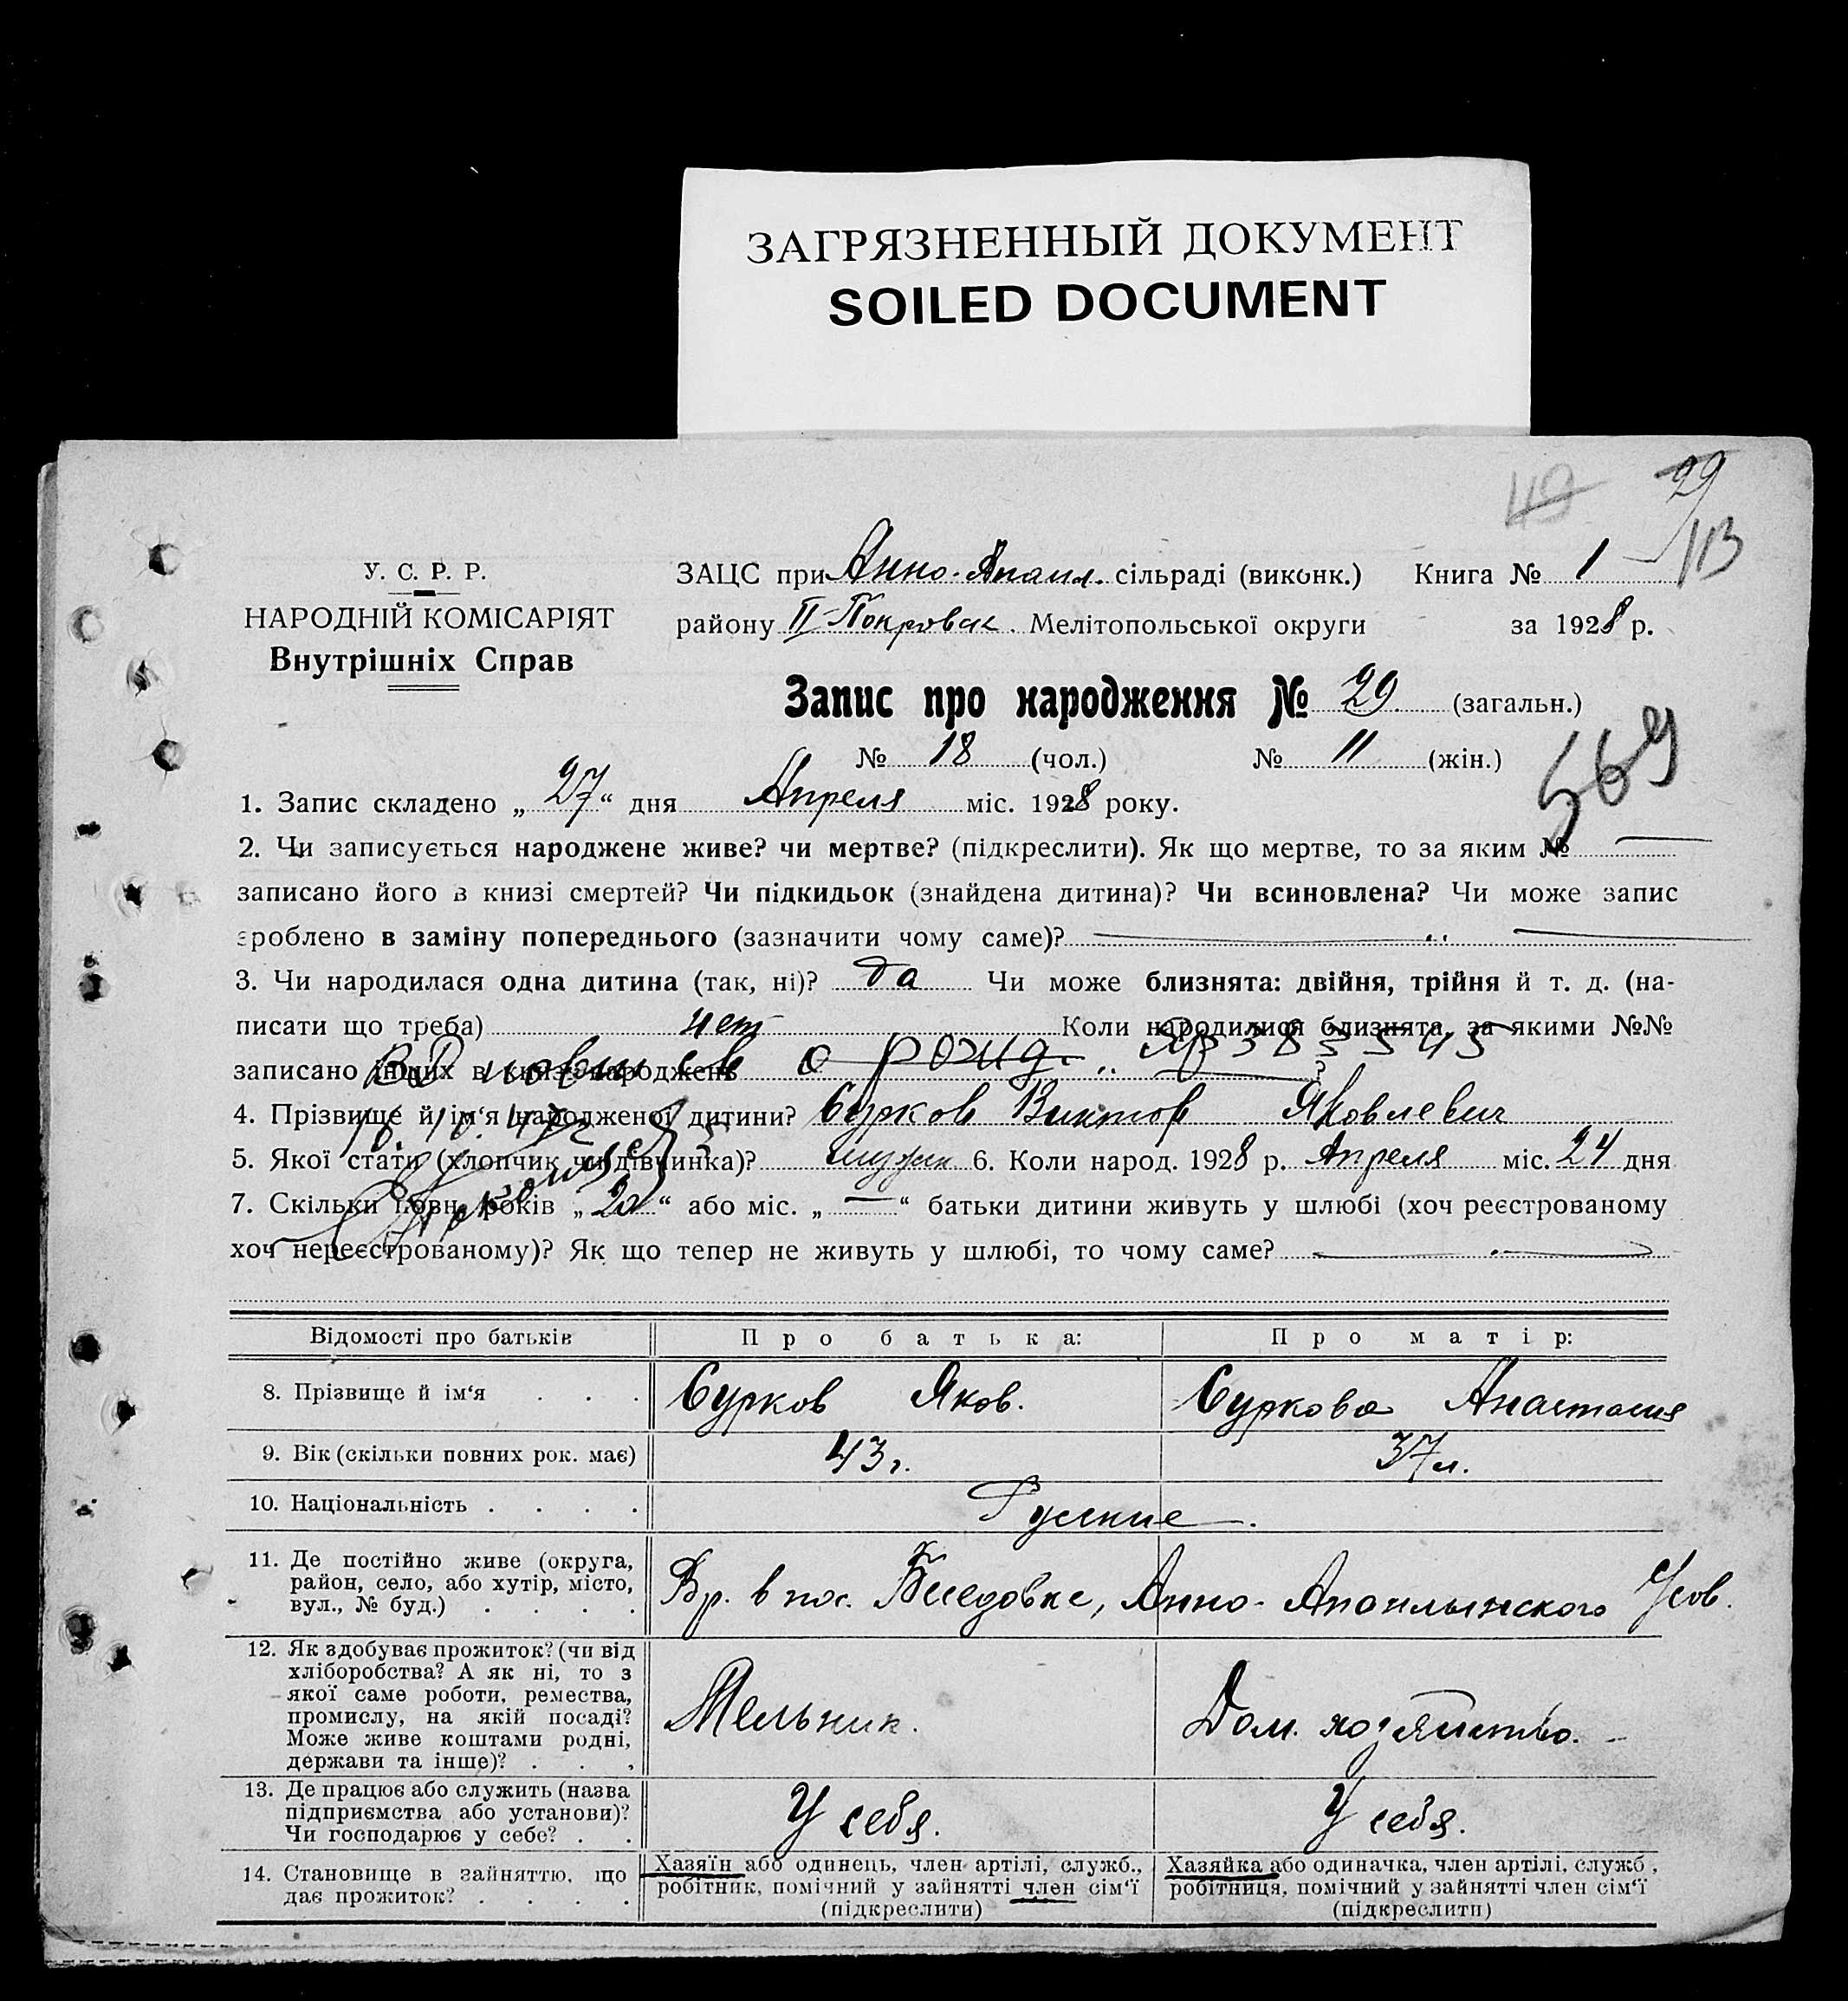 ЗАГРЯЗНЕННЫЙ ДОКУМЕНТ
SOILED DOCUMENT
49 29
113
У. С. Р. Р.
НАРОДНІЙ КОМІСАРІЯТ
Внутрішніх Справ
ЗАЦС при Анно-Апаил. сільраді (виконк.) Книга № 1
району II Покровск. Мелітопольської округи за 1928 р.
Запис про народження № 29 (загальн.)
№ 18 (чол.) № 11 (жін.)
569
1. Запис складено „27“ дня Апреля міс. 1928 року.
2. Чи записується народжене живе? чи мертве? (підкреслити). Як що мертве, то за яким № —
записано його в книзі смертей? Чи підкидьок (знайдена дитина)? Чи всиновлена? Чи може запис
зроблено в заміну попереднього (зазначити чому саме)?
3. Чи народилася одна дитина (так, ні)? да Чи може близнята: двійня, трійня й т. д. (на-
писати що треба) нет Коли народилися близнята, за якими №№
записано інших в книзі народжень ?
о рожд.
4. Прізвище й ім‘я народженої дитини? Сурков Виктор Яковлевич
5. Якої стати (хлопчик чи дівчинка)? 6. Коли народ. 1928 р. Апреля міс. 24 дня
7. Скільки повн. років „20“ або міс. „—“ батьки дитини живуть у шлюбі (хоч реєстрованому
хоч нереєстрованому)? Як що тепер не живуть у шлюбі, то чому саме?
Відомості про батьків Про батька: Про матір:
8. Прізвище й ім‘я . . . Сурков Яков. Суркова Анастасия
9. Вік (скільки повних рок. має) 43 г. 37 л.
10. Національність . . . . Русские.
11. Де постійно живе (округа,
район, село, або хутір, місто,
вул., № буд.) . . . .
Вр. в пос. Беседовке, Анно-Апоильинского
12. Як здобуває прожиток? (чи від
хліборобства? А як ні, то з
якої саме роботи, ремества,
промислу, на якій посаді?
Може живе коштами родні,
держави та інше)? . . .
Мельник. Дом. хозяйство.
13. Де працює або служить (назва
підприємства або установи)?
Чи господарює у себе? . .
У себя. У себя.
14. Становище в зайняттю, що
дає прожиток? . . . .
Хазяїн або одинець, член артілі, служб.,
робітник, помічний у зайнятті член сім‘ї
(підкреслити)
Хазяйка або одиначка, член артілі, служб.,
робітниця, помічний у зайнятті член сім‘ї
(підкреслити)